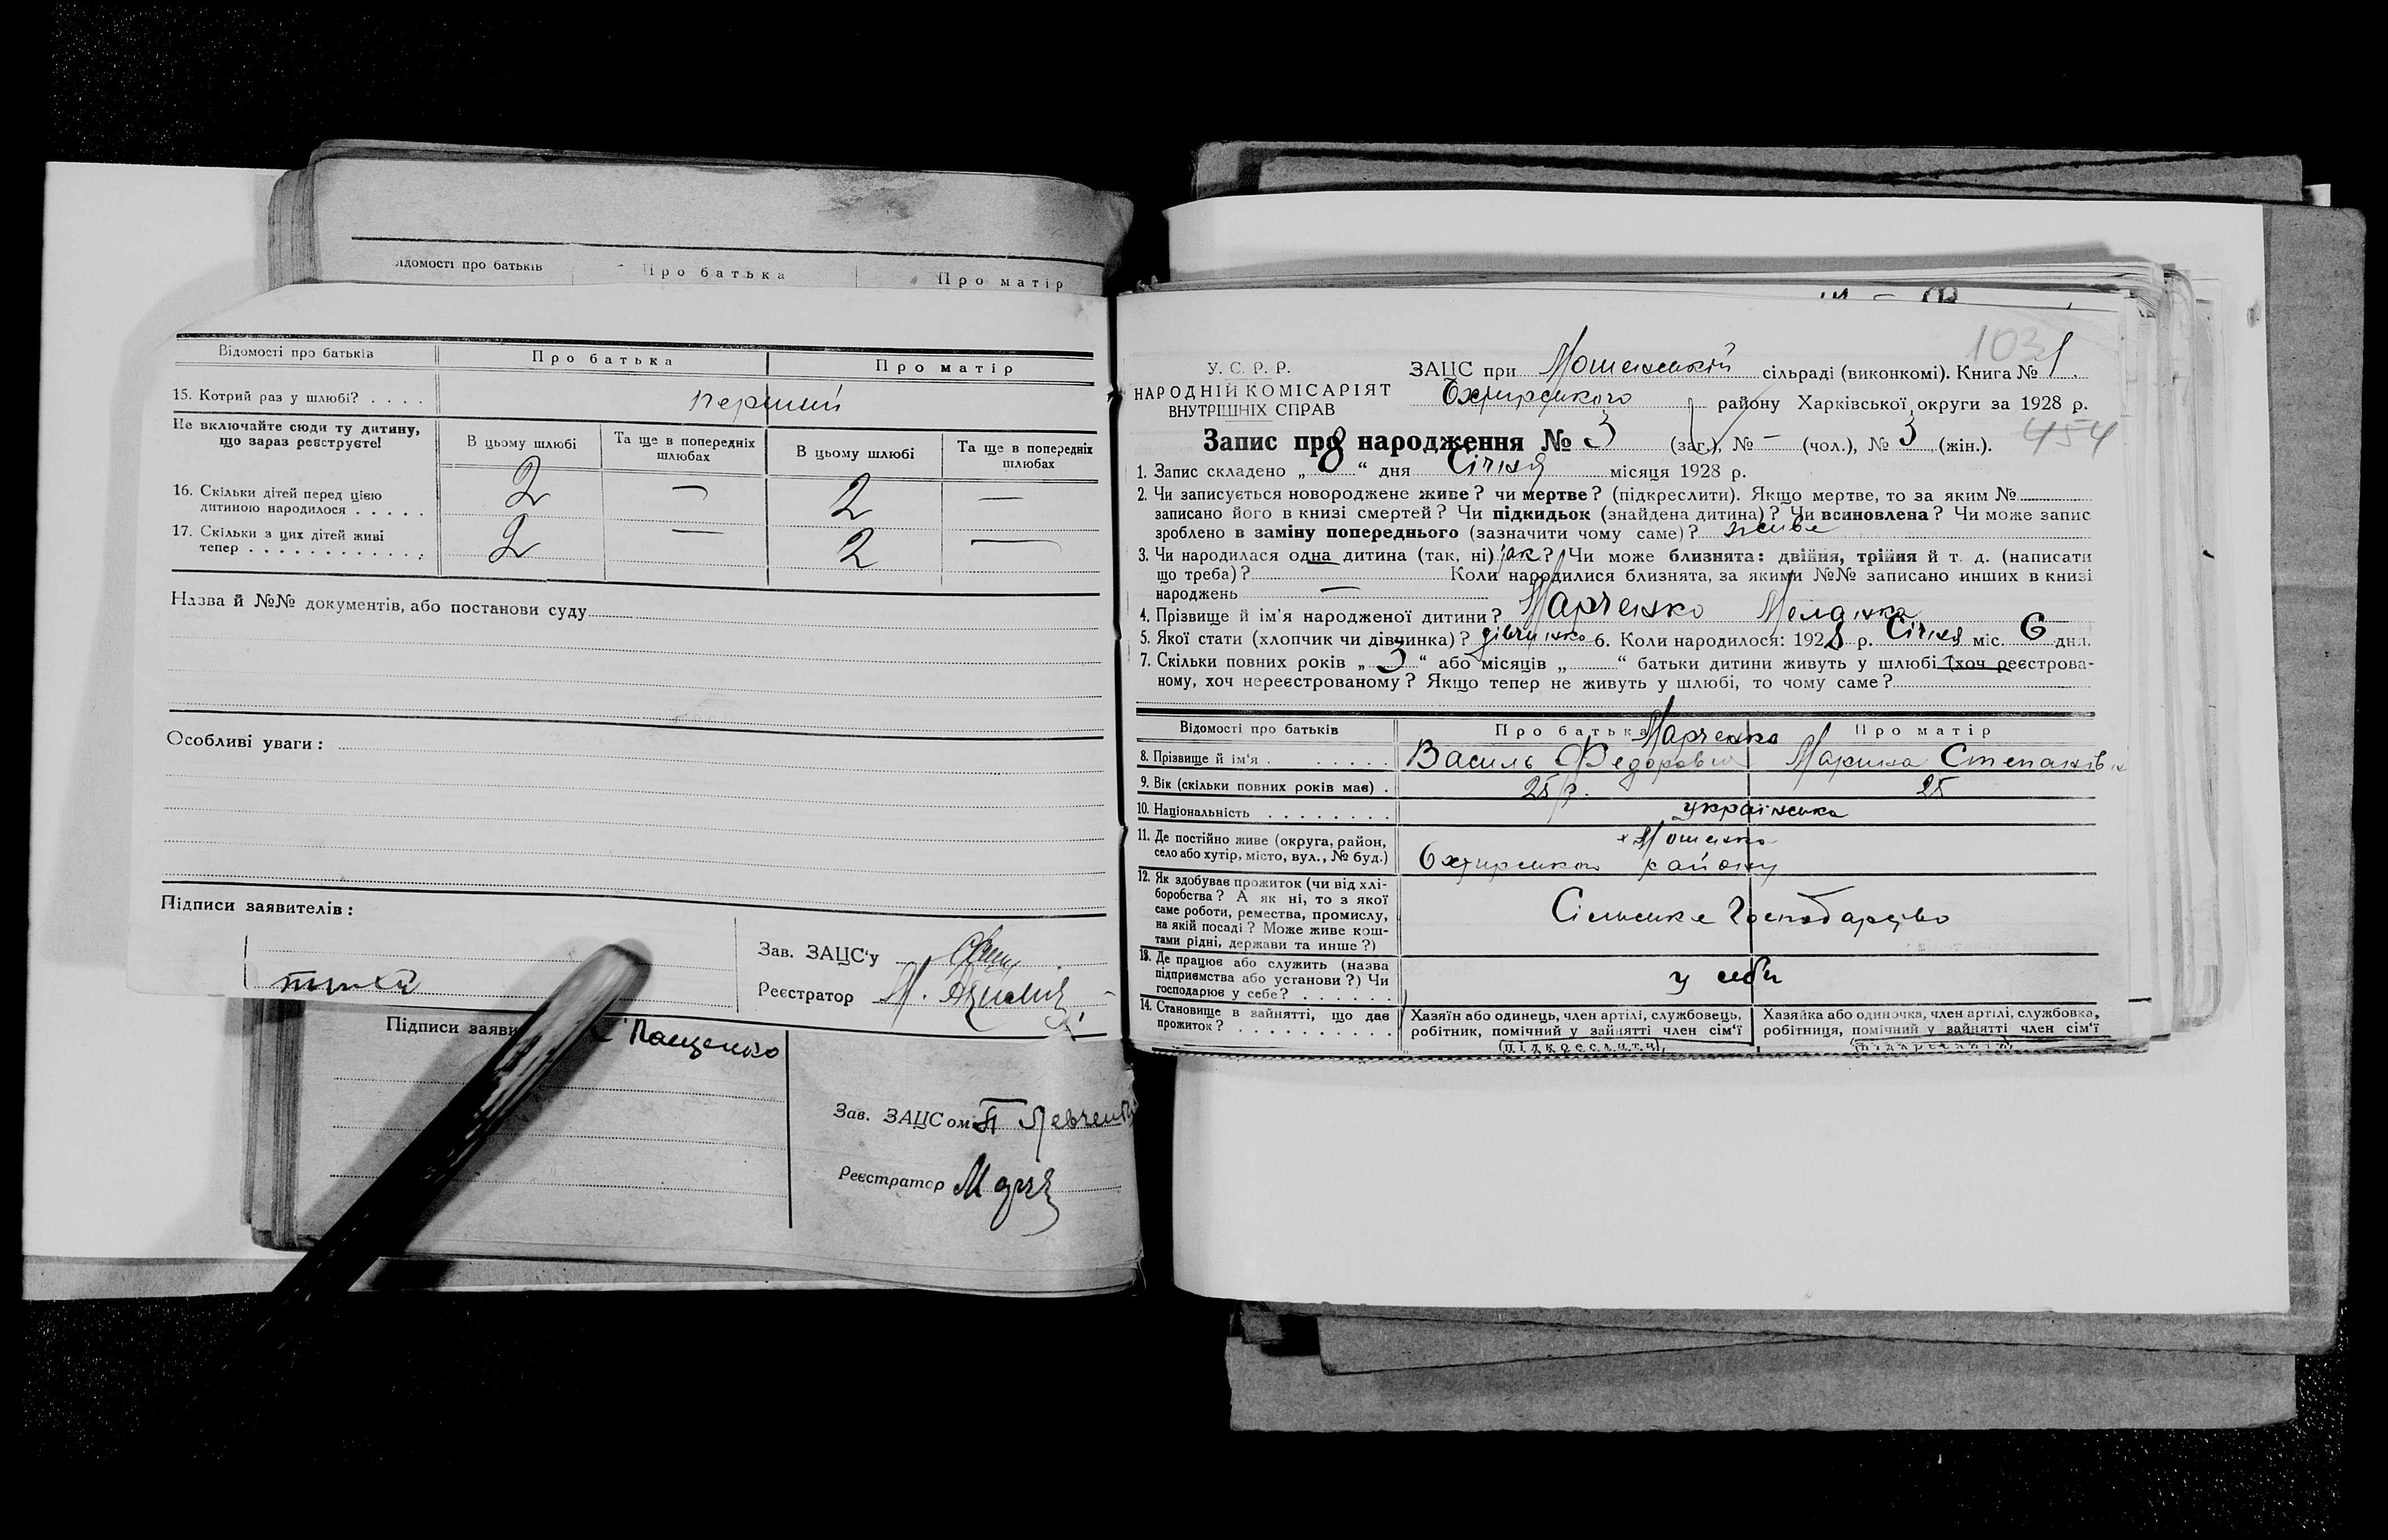 ідомості про батьків Про батька Про матір
Відомості про батьків Про батька Про матір
15. Котрий раз у шлюбі? . . . . перший
Не включайте сюди ту дитину, що зараз реєструєте!
В цьому шлюбі Та ще в попередніх шлюбах В цьому шлюбі Та ще в попередніх шлюбах
16. Скільки дітей перед цією
дитиною народилося . . . . . 2 — 2 —
17. Скільки з цих дітей живі
тепер . . . . . . . . . . . . 2 — 2 —
Назва й №№ документів, або постанови суду
Особливі уваги :
Підписи заявителів :
Зав. ЗАЦС'у
Реєстратор
Підписи заяви Пащенко
Зав. ЗАЦСом П Левченко
Реєстратор
103
У. С. Р. Р.
НАРОДНІЙ КОМІСАРІЯТ
ВНУТРІШНІХ СПРАВ
ЗАЦС при Мошенській сільраді (виконкомі). Книга № 1.
Охтирського району Харківської округи за 1928 р.
Запис про народження № 3 (заг.), № – (чол.), № 3 (жін.). 454
1. Запис складено „ 8 “ дня Січня місяця 1928 р.
2. Чи записується новороджене живе? чи мертве? (підкреслити). Якщо мертве, то за яким №
записано його в книзі смертей? Чи підкидьок (знайдена дитина)? Чи всиновлена? Чи може запис
зроблено в заміну попереднього (зазначити чому саме)? живе
3. Чи народилася одна дитина (так, ні) так? Чи може близнята: двійня, трійня й т. д. (написати
що треба)? Коли народилися близнята, за якими №№ записано инших в книзі
народжень —
4. Прізвище й ім'я народженої дитини? Марченко Меланка
5. Якої стати (хлопчик чи дівчинка)? дівчинка 6. Коли народилося: 1928 р. Січня міс. 6 дня.
7. Скільки повних років „ 3 “ або місяців „ “ батьки дитини живуть у шлюбі (хоч реєстрова-
ному, хоч нереєстрованому? Якщо тепер не живуть у шлюбі, то чому саме?
Відомості про батьків Про батька Про матір
Марченко
8. Прізвище й ім'я . . . . . . Василь Федорович Марина Степанівн
9. Вік (скільки повних років має) . 25 р. 25
10. Національність . . . . . . . . українська
11. Де постійно живе (округа, район,
село або хутір, місто, вул., № буд.) х Мошенка
Охтирського району
12. Як здобуває прожиток (чи від хлі-
боробства? А як ні, то з якої
саме роботи, ремества, промислу,
на якій посаді? Може живе кош-
тами рідні, держави та инше?)
Сільське Господарство
13. Де працює або служить (назва
підприємства або установи?) Чи
господарює у себе? . . . . . .
у себи
14. Становище в зайнятті, що дає
прожиток? . . . . . . . . . .
Хазяїн або одинець, член артілі, службовець,
робітник, помічний у зайнятті член сім'ї
(підкреслити)
Хазяйка або одиночка, член артілі, службовка,
робітниця, помічний у зайнятті член сім'ї
(підкреслити)